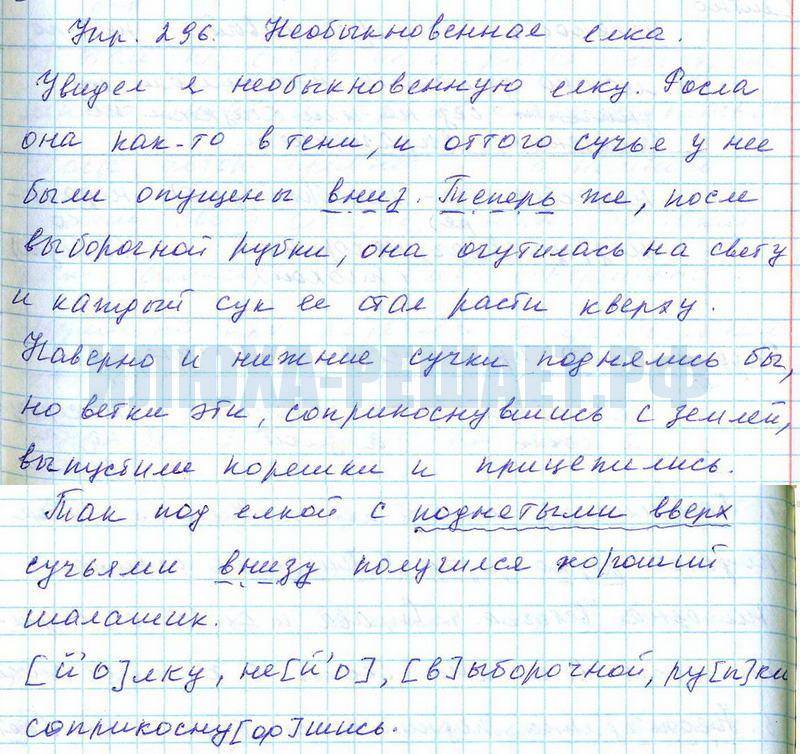 Упр. 296. Необыкновенная елка.
Увидел я необыкновенную елку. Росла
она как-то в тени, и оттого сучье у нее
были опущены вниз. Теперь же, после
выборочной рубки, она очутилась на свету
и каждый сук ее стал расти кверху.
Наверно и нижние сучки поднялись бы,
ИЛЮХА-РЕШАЕТ.РФ
но ветки эти, соприкоснувшись с землей,
выпустили корешки и прицепились.
Так под елкой с поднетыми вверх
сучьями внизу получился хороший
шалашик.
[й'о]лку, не[й'о], [в]ыборочной, ру[п]ки
соприкосну[ф]шись.